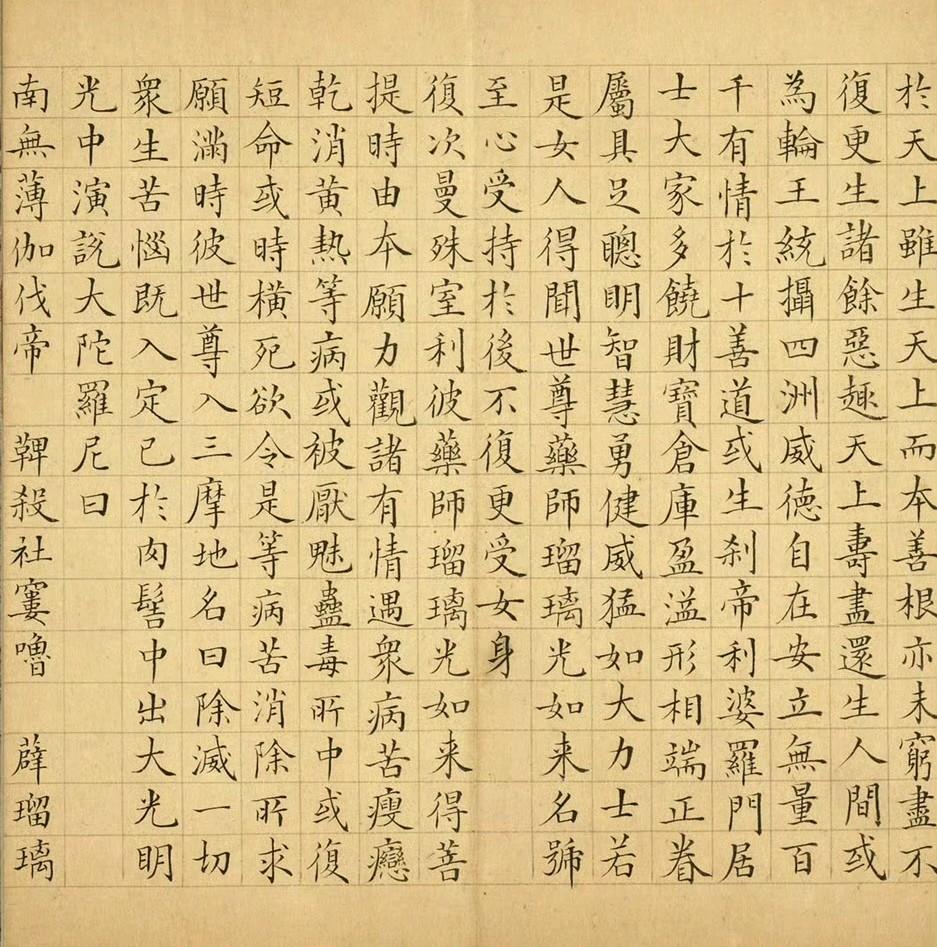 於天上雖生天上而本善根亦未窮盡不
復更生諸餘惡趣天上壽盡還生人間或
為輪王統攝四洲威德自在安立無量百
千有情於十善道或生剎帝利婆羅門居
士大家多饒財寶倉庫盈溢形相端正眷
屬具足聰明智慧勇健威猛如大力士若
是女人得聞世尊藥師瑠璃光如来名號
至心受持於後不復更受女身
復次曼殊室利彼藥師瑠璃光如来得菩
提時由本願力觀諸有情遇衆病苦瘦癴
乾消黄熱等病或被厭魅蠱毒所中或復
短命或時橫死欲令是等病苦消除所求
願滿時彼世尊入三摩地名曰除滅一切
衆生苦惱既入定已於肉髻中出大光明
光中演説大陀羅尼曰
南無薄伽伐帝 鞞殺社窶嚕 薜瑠璃